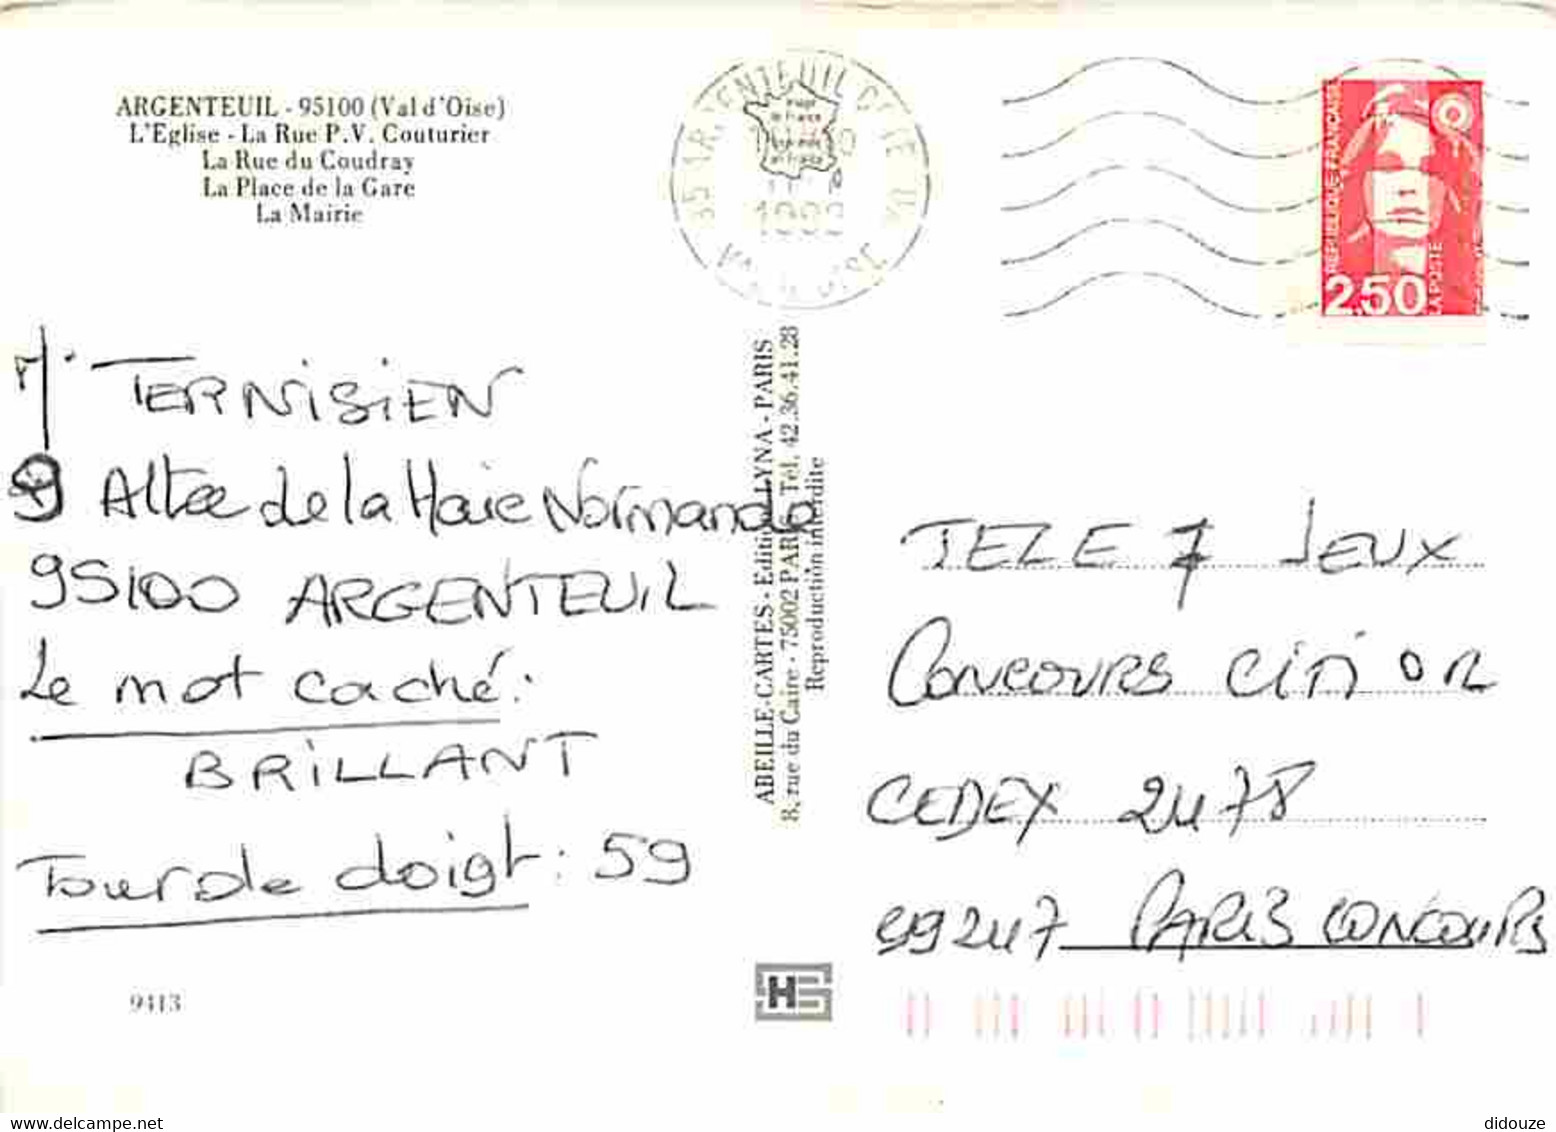 ARGENTEUIL - 95100 (Val d'Oise)
L'Eglise - La Rue P.V. Couturier
La Rue du Coudray
La Place de la Gare
La Mairie
REPUBLIQUE FRANÇAISE
2,50
LA POSTE
Mr TERNISIEN
9 Allée de la Haie Normande
95100 ARGENTEUIL
Le mot caché:
BRILLANT
Tour de doigt: 59
9413
ABEILLE-CARTES - Editions LYNA - PARIS
8, rue du Caire - 75002 PARIS Tél. 42.36.41.28
Reproduction interdite
TELE 7 JEUX
CONCOURS CITI OR
CEDEX 2478
99247 PARIS CONCOURS
delcampe.net
didouze